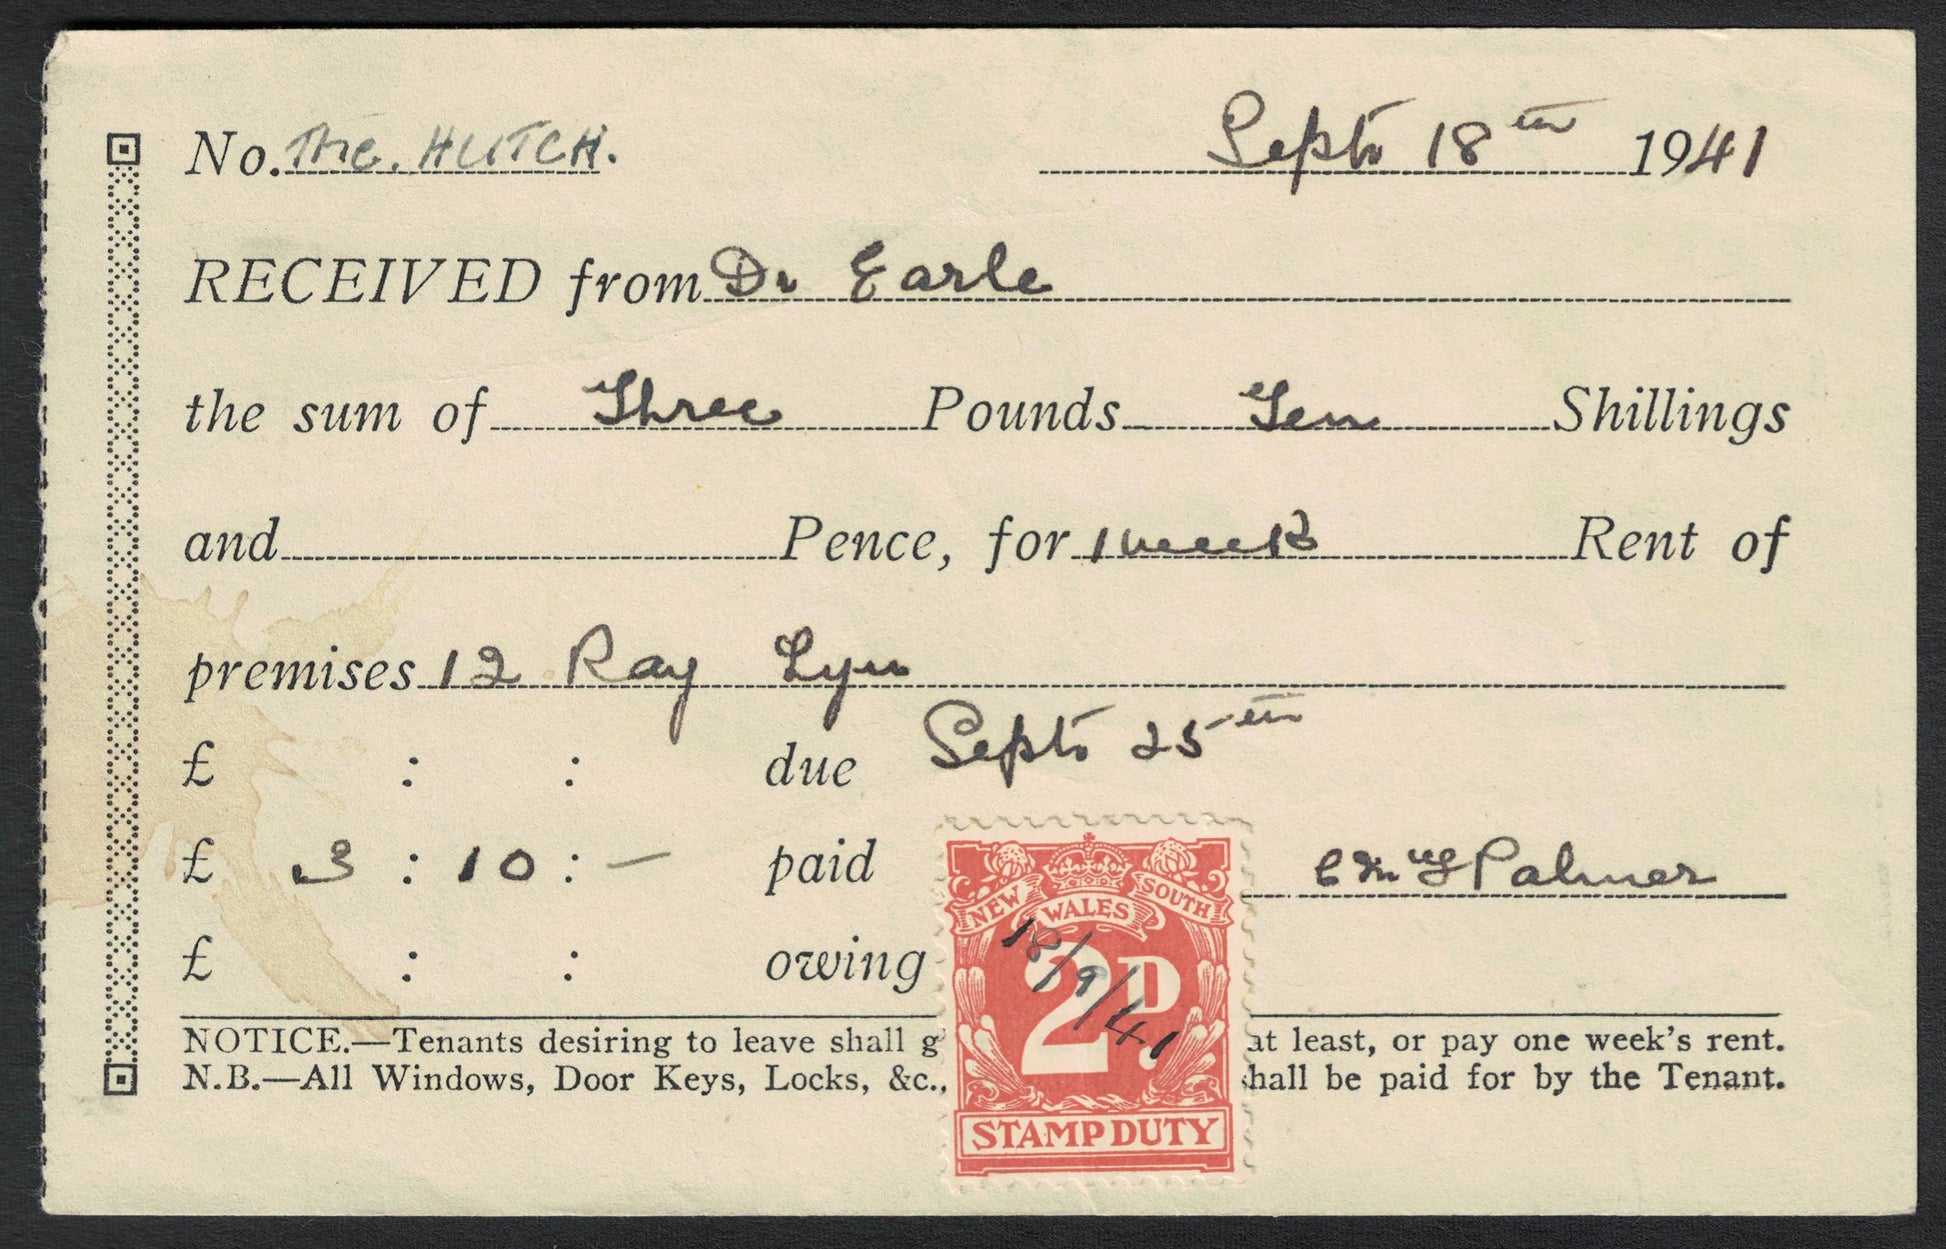 No. The. HUTCH. Septr 18th 1941
RECEIVED from Dr Earle
the sum of Three Pounds Ten Shillings
and Pence, for 1 week Rent of
premises 12 Ray Lyn
£ : : due Septr 25th
£ 3 : 10 : — paid Palmer
£ : : owing
NEW SOUTH WALES
2D.
18/9/41
STAMP DUTY
NOTICE.—Tenants desiring to leave shall g at least, or pay one week's rent.
N.B.—All Windows, Door Keys, Locks, &c., shall be paid for by the Tenant.